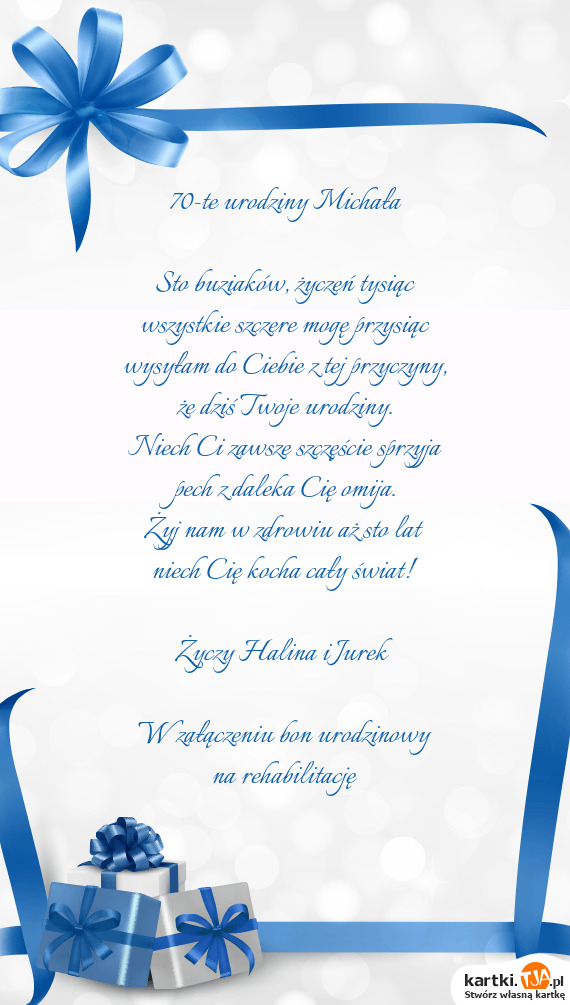 70-te urodziny Michała
Sto buziaków, życzeń tysiąc
wszystkie szczere mogę przysiąc
wysyłam do Ciebie z tej przyczyny,
że dziś Twoje urodziny.
Niech Ci zawsze szczęście sprzyja
pech z daleka Cię omija.
Żyj nam w zdrowiu aż sto lat
niech Cię kocha cały świat!
Życzy Halina i Jurek
W załączeniu bon urodzinowy
na rehabilitację
kartki.TJA.pl
Stwórz własną kartkę